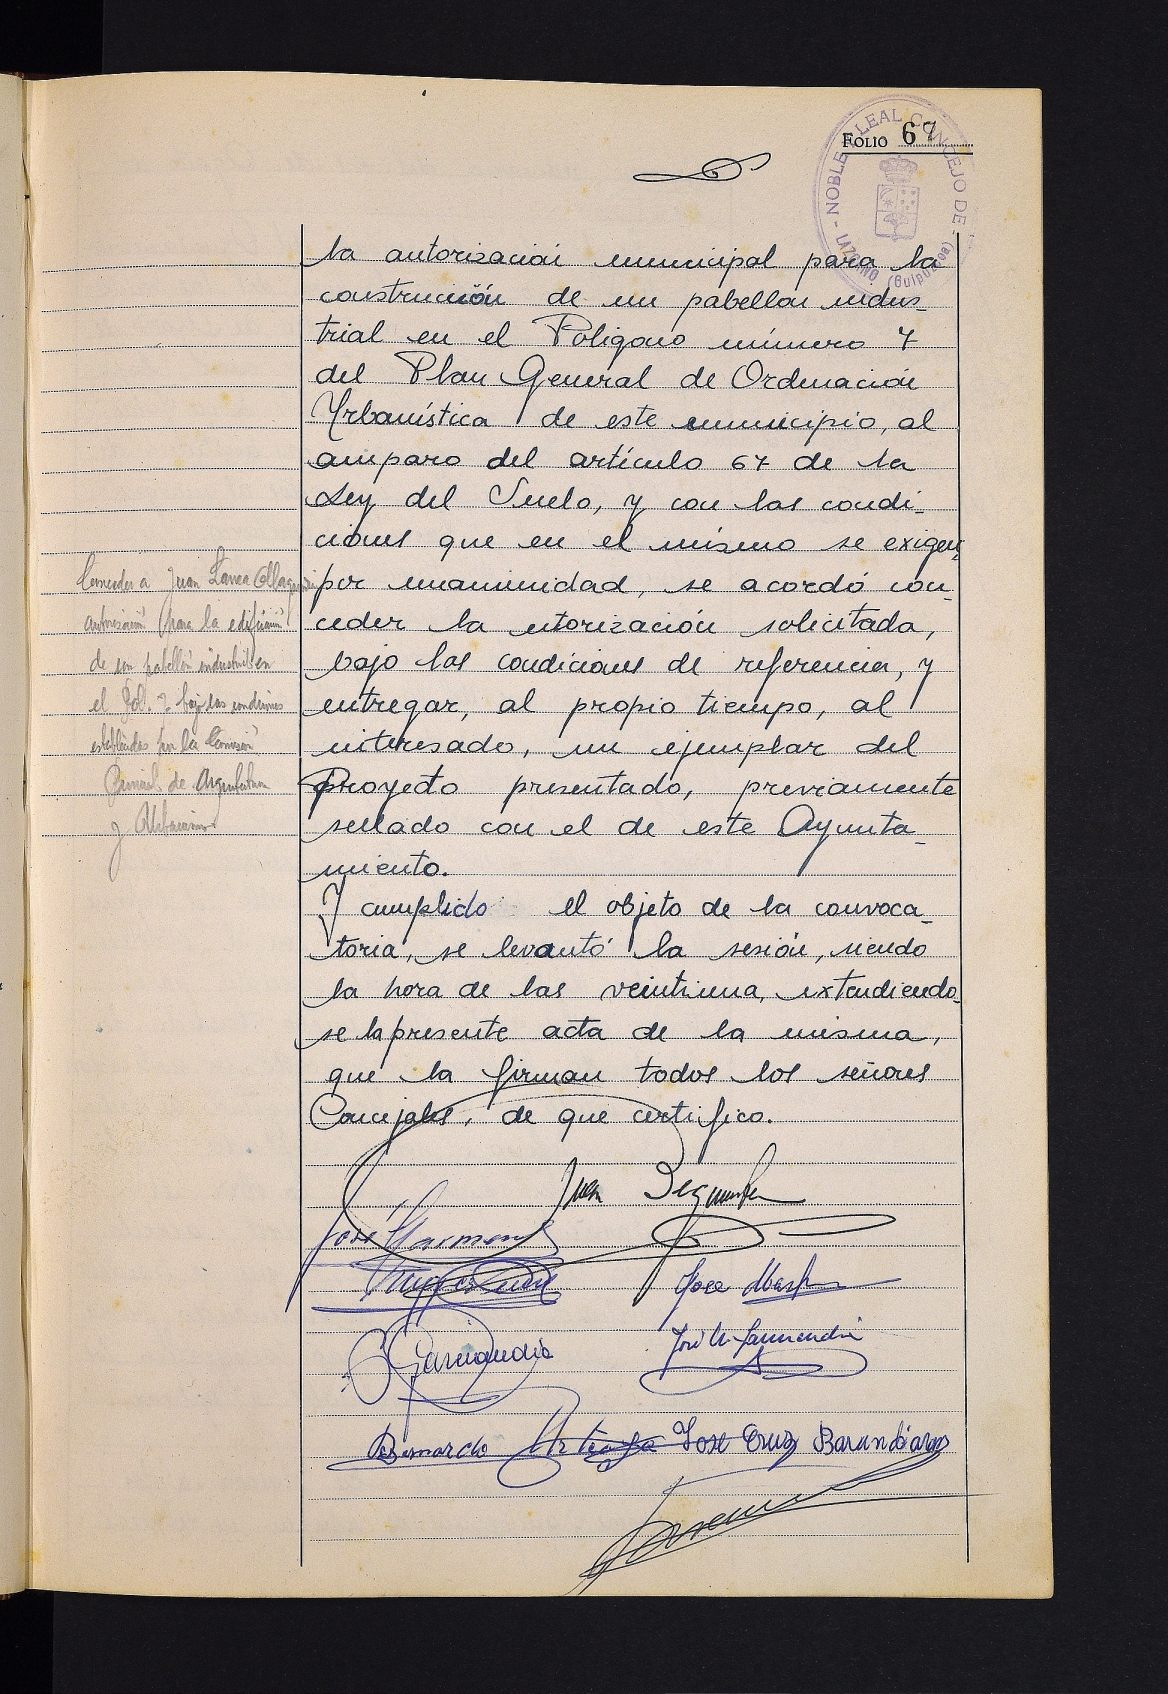 FOLIO 67
NOBLE Y LEAL CONCEJO DE
LAZCANO (Guipúzcoa)
la autorización municipal para la
construcción de un pabellon indus-
trial en el Poligono número 7
del Plan General de Ordenación
Urbanística de este municipio, al
amparo del artículo 67 de la
Ley del Suelo, y con las condi-
ciones que en el mismo se exigen,
por unanimidad, se acordó con-
ceder la utorización solicitada,
bajo las condiciones de referencia, y
entregar, al propio tiempo, al
interesado, un ejemplar del
Proyecto presentado, previamente
sellado con el de este Ayunta-
miento.
Y cumplido el objeto de la convoca-
toria, se levantó la sesión, siendo
la hora de las veintiuna, extendiendo-
se la presente acta de la misma,
que la firman todos los señores
Concejales, de que certifico.
Conceder a Juan Larrea
autorización para la edificación
de un pabellón industrial en
el Pol. 7 bajo las condiciones
establecidas por la Comisión
Provincial de Arquitectura
y Urbanismo
Juan
José
Jose
Garmendia
José M. Garmendia
Bernardo Arteaga José Cruz Barandiaran